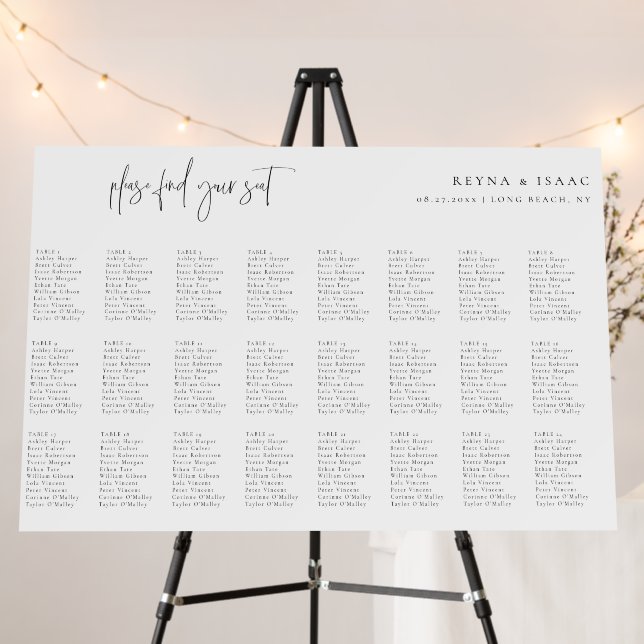 please find your seat
REYNA & ISAAC
08.27.20XX | LONG BEACH, NY
TABLE 1
Ashley Harper
Brett Culver
Isaac Robertson
Yvette Morgan
Ethan Tate
William Gibson
Lola Vincent
Peter Vincent
Corinne O'Malley
Taylor O'Malley
TABLE 2
Ashley Harper
Brett Culver
Isaac Robertson
Yvette Morgan
Ethan Tate
William Gibson
Lola Vincent
Peter Vincent
Corinne O'Malley
Taylor O'Malley
TABLE 3
Ashley Harper
Brett Culver
Isaac Robertson
Yvette Morgan
Ethan Tate
William Gibson
Lola Vincent
Peter Vincent
Corinne O'Malley
Taylor O'Malley
TABLE 4
Ashley Harper
Brett Culver
Isaac Robertson
Yvette Morgan
Ethan Tate
William Gibson
Lola Vincent
Peter Vincent
Corinne O'Malley
Taylor O'Malley
TABLE 5
Ashley Harper
Brett Culver
Isaac Robertson
Yvette Morgan
Ethan Tate
William Gibson
Lola Vincent
Peter Vincent
Corinne O'Malley
Taylor O'Malley
TABLE 6
Ashley Harper
Brett Culver
Isaac Robertson
Yvette Morgan
Ethan Tate
William Gibson
Lola Vincent
Peter Vincent
Corinne O'Malley
Taylor O'Malley
TABLE 7
Ashley Harper
Brett Culver
Isaac Robertson
Yvette Morgan
Ethan Tate
William Gibson
Lola Vincent
Peter Vincent
Corinne O'Malley
Taylor O'Malley
TABLE 8
Ashley Harper
Brett Culver
Isaac Robertson
Yvette Morgan
Ethan Tate
William Gibson
Lola Vincent
Peter Vincent
Corinne O'Malley
Taylor O'Malley
TABLE 9
Ashley Harper
Brett Culver
Isaac Robertson
Yvette Morgan
Ethan Tate
William Gibson
Lola Vincent
Peter Vincent
Corinne O'Malley
Taylor O'Malley
TABLE 10
Ashley Harper
Brett Culver
Isaac Robertson
Yvette Morgan
Ethan Tate
William Gibson
Lola Vincent
Peter Vincent
Corinne O'Malley
Taylor O'Malley
TABLE 11
Ashley Harper
Brett Culver
Isaac Robertson
Yvette Morgan
Ethan Tate
William Gibson
Lola Vincent
Peter Vincent
Corinne O'Malley
Taylor O'Malley
TABLE 12
Ashley Harper
Brett Culver
Isaac Robertson
Yvette Morgan
Ethan Tate
William Gibson
Lola Vincent
Peter Vincent
Corinne O'Malley
Taylor O'Malley
TABLE 13
Ashley Harper
Brett Culver
Isaac Robertson
Yvette Morgan
Ethan Tate
William Gibson
Lola Vincent
Peter Vincent
Corinne O'Malley
Taylor O'Malley
TABLE 14
Ashley Harper
Brett Culver
Isaac Robertson
Yvette Morgan
Ethan Tate
William Gibson
Lola Vincent
Peter Vincent
Corinne O'Malley
Taylor O'Malley
TABLE 15
Ashley Harper
Brett Culver
Isaac Robertson
Yvette Morgan
Ethan Tate
William Gibson
Lola Vincent
Peter Vincent
Corinne O'Malley
Taylor O'Malley
TABLE 16
Ashley Harper
Brett Culver
Isaac Robertson
Yvette Morgan
Ethan Tate
William Gibson
Lola Vincent
Peter Vincent
Corinne O'Malley
Taylor O'Malley
TABLE 17
Ashley Harper
Brett Culver
Isaac Robertson
Yvette Morgan
Ethan Tate
William Gibson
Lola Vincent
Peter Vincent
Corinne O'Malley
Taylor O'Malley
TABLE 18
Ashley Harper
Brett Culver
Isaac Robertson
Yvette Morgan
Ethan Tate
William Gibson
Lola Vincent
Peter Vincent
Corinne O'Malley
Taylor O'Malley
TABLE 19
Ashley Harper
Brett Culver
Isaac Robertson
Yvette Morgan
Ethan Tate
William Gibson
Lola Vincent
Peter Vincent
Corinne O'Malley
Taylor O'Malley
TABLE 20
Ashley Harper
Brett Culver
Isaac Robertson
Yvette Morgan
Ethan Tate
William Gibson
Lola Vincent
Peter Vincent
Corinne O'Malley
Taylor O'Malley
TABLE 21
Ashley Harper
Brett Culver
Isaac Robertson
Yvette Morgan
Ethan Tate
William Gibson
Lola Vincent
Peter Vincent
Corinne O'Malley
Taylor O'Malley
TABLE 22
Ashley Harper
Brett Culver
Isaac Robertson
Yvette Morgan
Ethan Tate
William Gibson
Lola Vincent
Peter Vincent
Corinne O'Malley
Taylor O'Malley
TABLE 23
Ashley Harper
Brett Culver
Isaac Robertson
Yvette Morgan
Ethan Tate
William Gibson
Lola Vincent
Peter Vincent
Corinne O'Malley
Taylor O'Malley
TABLE 24
Ashley Harper
Brett Culver
Isaac Robertson
Yvette Morgan
Ethan Tate
William Gibson
Lola Vincent
Peter Vincent
Corinne O'Malley
Taylor O'Malley